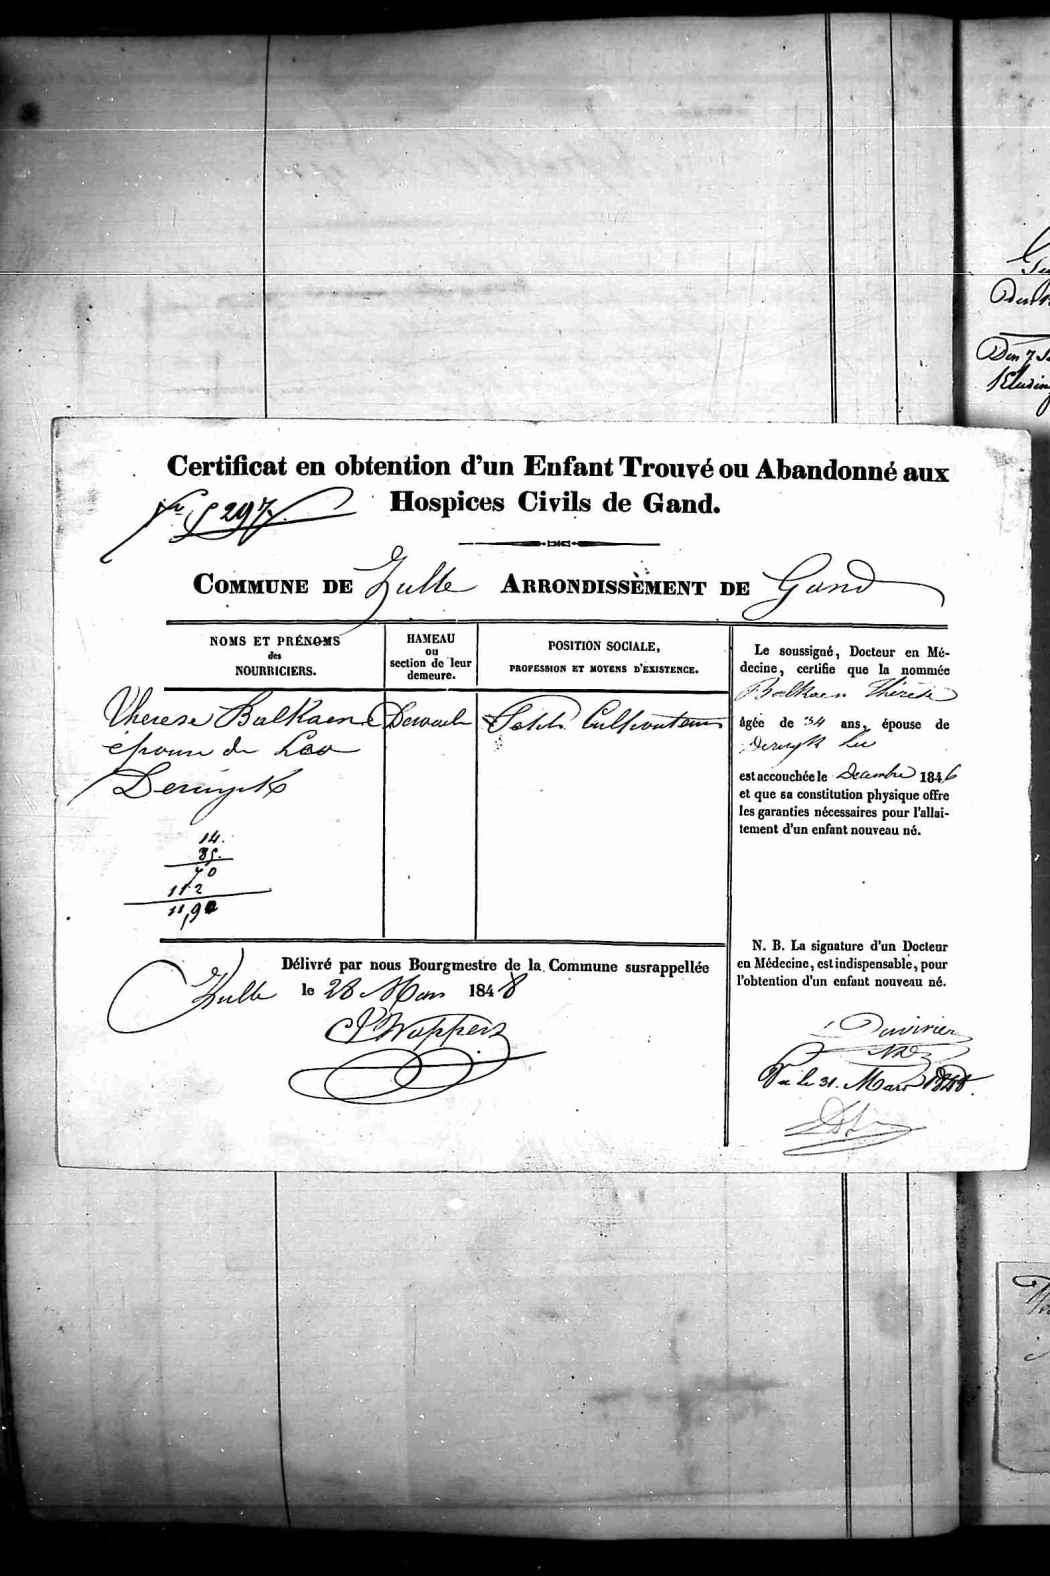 Certificat en obtention d'un Enfant Trouvé ou Abandonné aux
Hospices Civils de Gand.
297
COMMUNE DE Zulte ARRONDISSÈMENT DE Gand
NOMS ET PRÉNOMS
des
NOURRICIERS.
HAMEAU
ou
section de leur
demeure.
POSITION SOCIALE,
PROFESSION ET MOYENS D'EXISTENCE.
Therese Balkaen
épouse de Leo
Deruyck
Petit Cultivateur
14.
35.
70
112
11,90
Le soussigné, Docteur en Mé-
decine, certifie que la nommée
Balkaen Thérèse
âgée de 34 ans, épouse de
Deruyck
est accouchée le Decembre 1846
et que sa constitution physique offre
les garanties nécessaires pour l'allai-
tement d'un enfant nouveau né.
N. B. La signature d'un Docteur
en Médecine, est indispensable, pour
l'obtention d'un enfant nouveau né.
Délivré par nous Bourgmestre de la Commune susrappellée
Zulte le 28 Mars 1848
Wappers
Vu le 31. Mars 1848.
Den 7